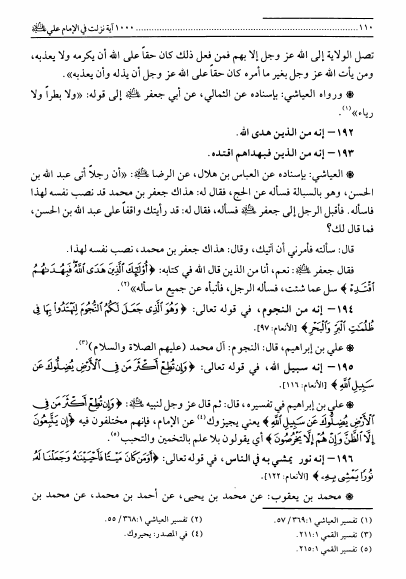 ١١٠ ........ ١٠٠٠ آية نزلت في الإمام علي ﷺ
تصل الولاية إلى الله عز وجل إلا بهم فمن فعل ذلك كان حقاً على الله أن يكرمه ولا يعذبه،
ومن يأت الله عز وجل بغير ما أمره كان حقاً على الله عز وجل أن يذله وأن يعذبه».
❋ ورواه العياشي: بإسناده عن الثمالي، عن أبي جعفر إلى قوله: «ولا بطراً ولا
رياء»(١).
١٩٢ - إنه من الذين هدى الله.
١٩٣ - إنه من الذين فبهداهم اقتده.
❋ العياشي: بإسناده عن العباس بن هلال، عن الرضا: «أن رجلاً أتى عبد الله بن
الحسن، وهو بالسبالة فسأله عن الحج، فقال له: هذاك جعفر بن محمد قد نصب نفسه لهذا
فاسأله. فأقبل الرجل إلى جعفر فسأله، فقال له: قد رأيتك واقفاً على عبد الله بن الحسن،
فما قال لك؟
قال: سألته فأمرني أن آتيك، وقال: هذاك جعفر بن محمد، نصب نفسه لهذا.
فقال جعفر: نعم، أنا من الذين قال الله في كتابه: ﴿أُوْلَٰئِكَ الَّذِينَ هَدَى اللَّهُ فَبِهُدَىٰهُمُ
اقْتَدِهْ﴾ سل عما شئت، فسأله الرجل، فأنبأه عن جميع ما سأله»(٢).
١٩٤ - إنه من النجوم، في قوله تعالى: ﴿وَهُوَ الَّذِي جَعَلَ لَكُمُ النُّجُومَ لِتَهْتَدُوا بِهَا فِي
ظُلُمَٰتِ الْبَرِّ وَالْبَحْرِ﴾ [الأنعام: ٩٧].
❋ علي بن إبراهيم، قال: النجوم: آل محمد (عليهم الصلاة والسلام)(٣).
١٩٥ - إنه سبيل الله، في قوله تعالى: ﴿وَإِن تُطِعْ أَكْثَرَ مَن فِي الْأَرْضِ يُضِلُّوكَ عَن
سَبِيلِ اللَّهِ﴾ [الأنعام: ١١٦].
❋ علي بن إبراهيم في تفسيره، قال: ثم قال عز وجل لنبيه: ﴿وَإِن تُطِعْ أَكْثَرَ مَن فِي
الْأَرْضِ يُضِلُّوكَ عَن سَبِيلِ اللَّهِ﴾ يعني يجيزوك(٤) عن الإمام، فإنهم مختلفون فيه ﴿إِن يَتَّبِعُونَ
إِلَّا الظَّنَّ وَإِنْ هُمْ إِلَّا يَخْرُصُونَ﴾ أي يقولون بلا علم بالتخمين والتحبب(٥).
١٩٦ - إنه نور يمشي به في الناس، في قوله تعالى: ﴿أَوَمَن كَانَ مَيْتًا فَأَحْيَيْنَٰهُ وَجَعَلْنَا لَهُ
نُورًا يَمْشِي بِهِ﴾ [الأنعام: ١٢٢].
❋ محمد بن يعقوب: عن محمد بن يحيى، عن أحمد بن محمد، عن محمد بن
(١) تفسير العياشي ١: ٣٦٩/ ٥٧.
(٢) تفسير العياشي ١: ٣٦٨/ ٥٥.
(٣) تفسير القمي ١: ٢١١.
(٤) في المصدر: يحيروك.
(٥) تفسير القمي ١: ٢١٥.